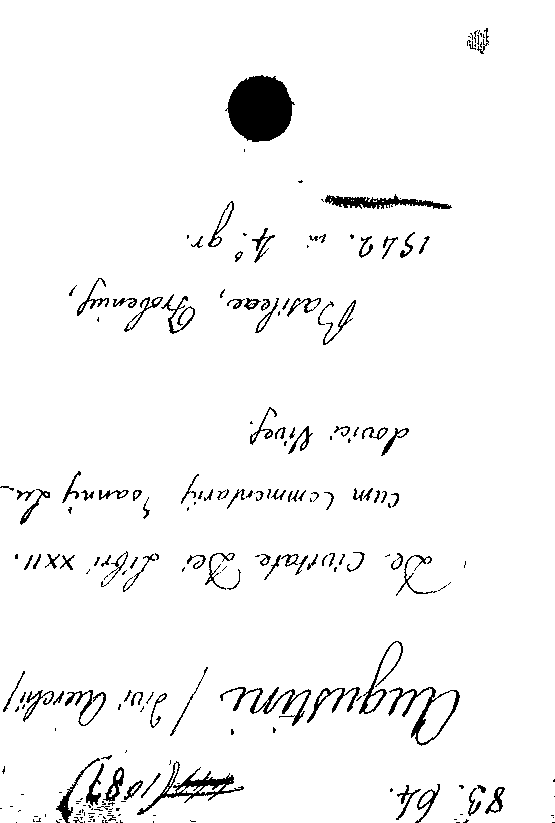 83. 64. (1087)
Augustini / Divi Aurelii /
De Civitate Dei Libri XXII.
cum Commentariis Joannis Lu_
dovici Vives.
Basileae, Frobenius,
1542. in 4º gr.